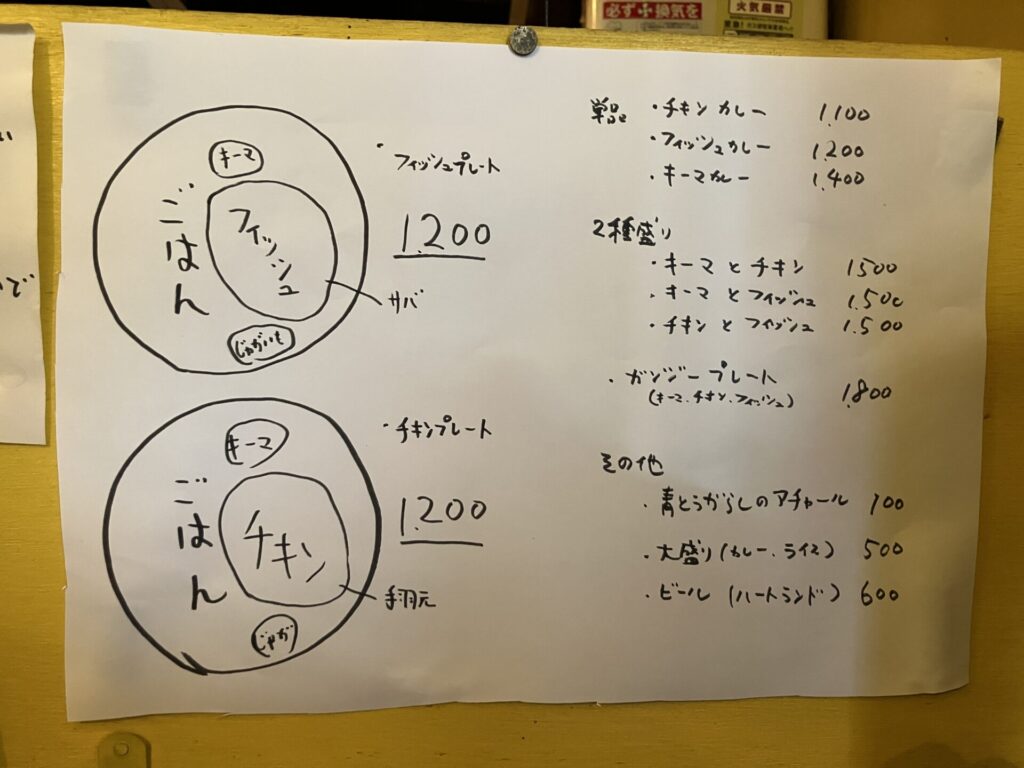 必ず換気を
火気厳禁
キーマ
ごはん
フィッシュ
じゃがいも
サバ
・フィッシュプレート
1,200
キーマ
ごはん
チキン
じゃが
手羽元
・チキンプレート
1,200
単品 ・チキンカレー 1,100
・フィッシュカレー 1,200
・キーマカレー 1,400
2種盛り
・キーマとチキン 1500
・キーマとフィッシュ 1,500
・チキンとフィッシュ 1,500
・ガンジープレート 1,800
(キーマ、チキン、フィッシュ)
その他
・青とうがらしのアチャール 100
・大盛り(カレー、ライス) 500
・ビール(ハートランド) 600
い
いで